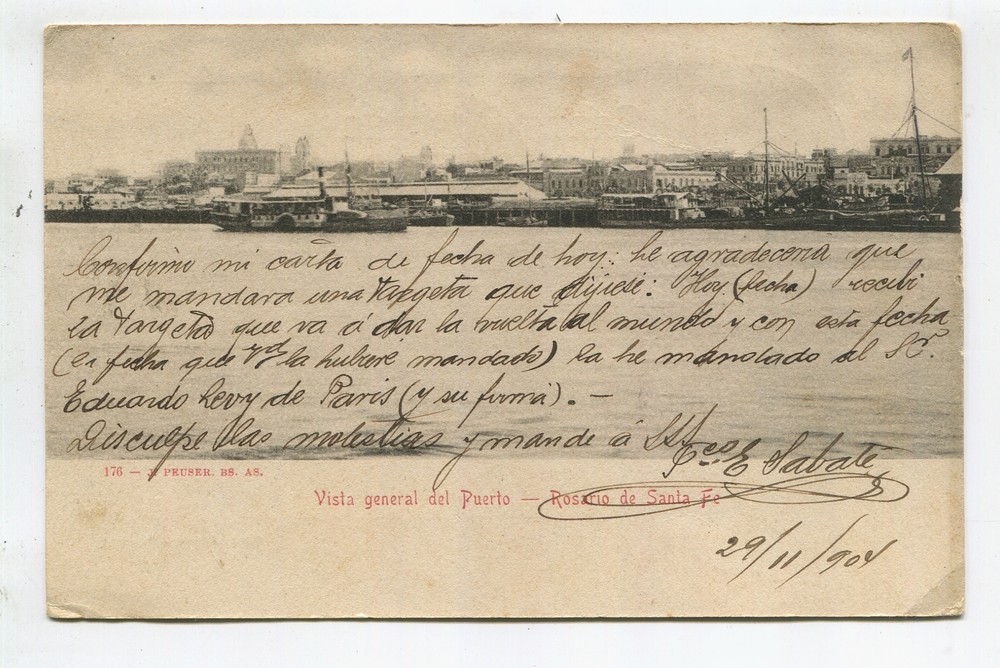 Confirmo mi carta de fecha de hoy: le agradeceria que
me mandara una Targeta que dijiese: Hoy (fecha) recibi
la Targeta que va á dar la vuelta al mundo y con esta fecha
(la fecha que Vd la hubiere mandado) la he mandado al Sr.
Eduardo Levy de Paris (y su firma). —
Disculpe las molestias y mande á SSS
Fco E Sabaté
176 — J. PEUSER. BS. AS.
Vista general del Puerto — Rosario de Santa Fe
29/11/904